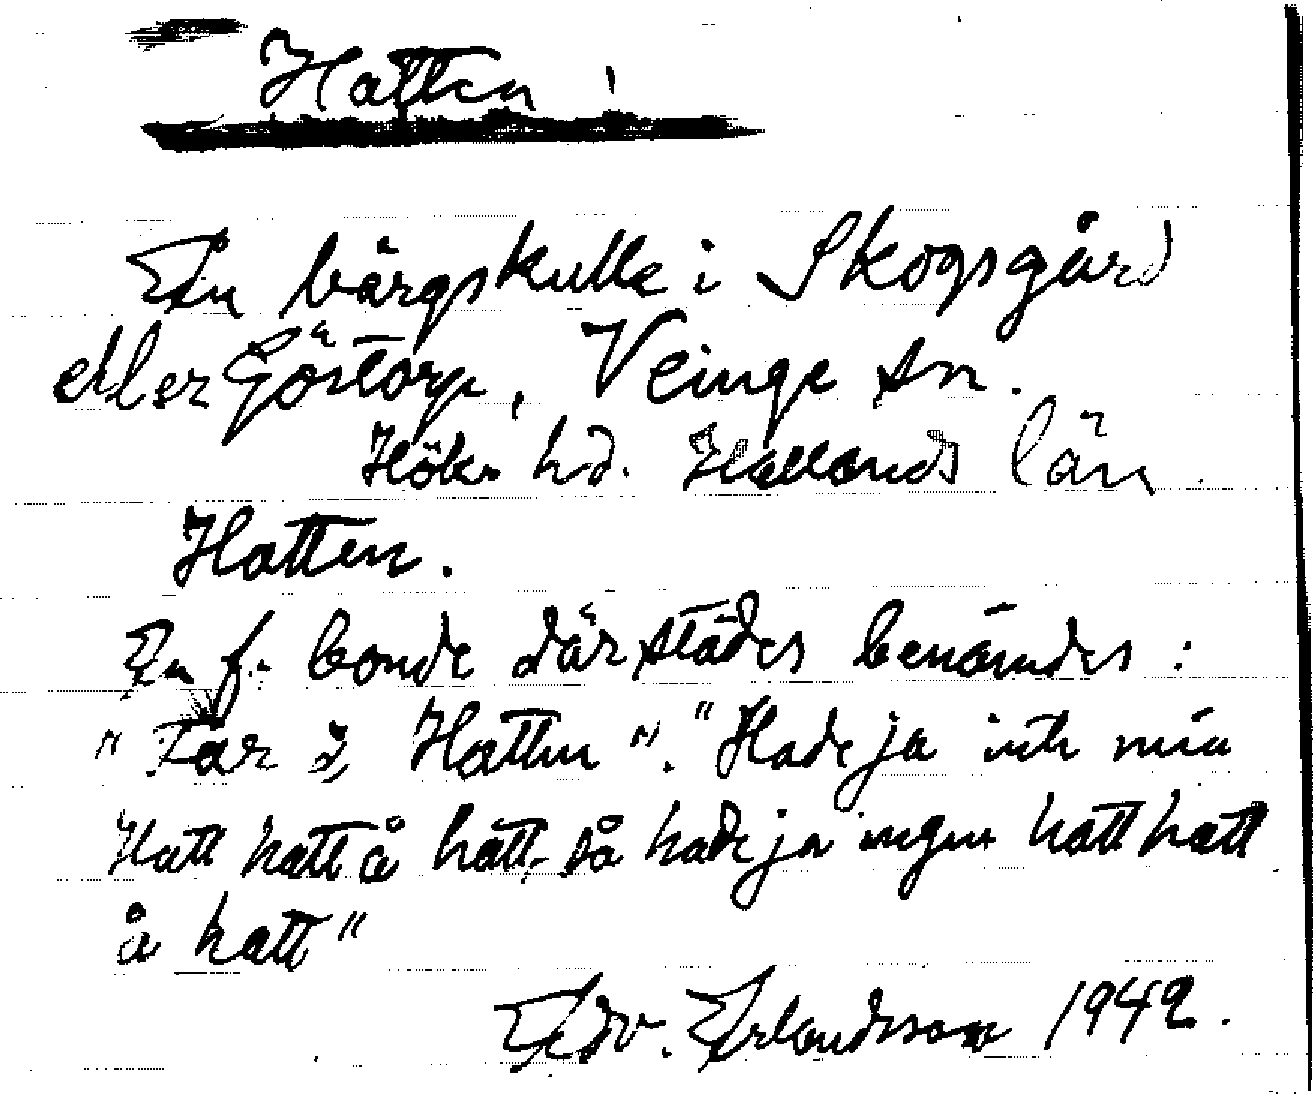 Hatten
En bärgskulle i Skogsgård
eller Göstorp, Veinge sn.
Höks hd. Hallands län
Hatten.
En f. bonde därstädes benämdes:
"Far i Hatten". "Hade ja inte min
Hatt hatt å hatt, så hade ja ingen hatt hatt
å hatt"
Edv. Erlandsson 1942.